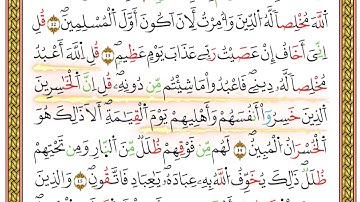 ٱللَّهَ مُخْلِصًا لَّهُ ٱلدِّينَ ۝ وَأُمِرْتُ لِأَنْ أَكُونَ أَوَّلَ ٱلْمُسْلِمِينَ ۝ قُلْ
إِنِّىٓ أَخَافُ إِنْ عَصَيْتُ رَبِّى عَذَابَ يَوْمٍ عَظِيمٍ ۝ قُلِ ٱللَّهَ أَعْبُدُ
مُخْلِصًا لَّهُۥ دِينِى ۝ فَٱعْبُدُوا۟ مَا شِئْتُم مِّن دُونِهِۦ ۗ قُلْ إِنَّ ٱلْخَٰسِرِينَ
ٱلَّذِينَ خَسِرُوٓا۟ أَنفُسَهُمْ وَأَهْلِيهِمْ يَوْمَ ٱلْقِيَٰمَةِ ۗ أَلَا ذَٰلِكَ هُوَ
ٱلْخُسْرَانُ ٱلْمُبِينُ ۝ لَهُم مِّن فَوْقِهِمْ ظُلَلٌ مِّنَ ٱلنَّارِ وَمِن تَحْتِهِمْ
ظُلَلٌ ۚ ذَٰلِكَ يُخَوِّفُ ٱللَّهُ بِهِۦ عِبَادَهُۥ ۚ يَٰعِبَادِ فَٱتَّقُونِ ۝ وَٱلَّذِينَ